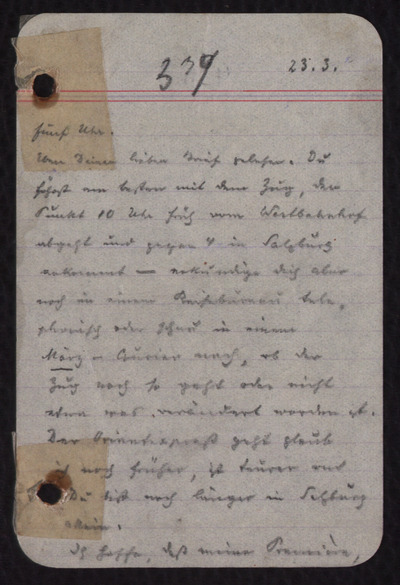 339 23.3.
fünf Uhr.
Von Deinen lieben Brief gelesen. Du
fährst am besten mit dem Zug, der
Punkt 10 Uhr früh vom Westbahnhof
abgeht und gegen 4 in Salzburg
ankommt – erkundige dich aber
noch in einem Reisebureau tele-
phonisch oder schau in einem
März-Courier nach, ob der
Zug noch so geht oder nicht
etwa was verändert worden ist.
Der Orientexpreß geht glaub
ich noch früher, ist teurer und
Du bist noch länger in Salzburg
allein.
Ich hoffe, daß meine Premiere,